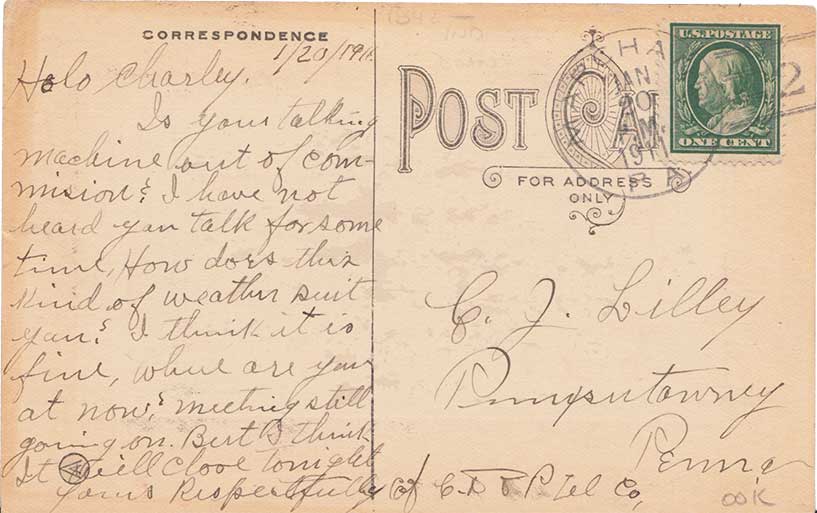 CORRESPONDENCE
1/20/1911.
Helo Charley.
Is your talking
machine out of com-
mision? I have not
heard you talk for some
time, How does this
kind of weather suit
you? I think it is
fine, where are you
at now? meeting still
going on. But I think
It will close tonight
Yours Respectfully
POST CARD
FOR ADDRESS
ONLY
U.S. POSTAGE
ONE CENT
JAN
20
AM
1911
PA
2
C. J. Lilley
Punxsutawney
Penna
C/o C. D & P Tel Co,
OOK